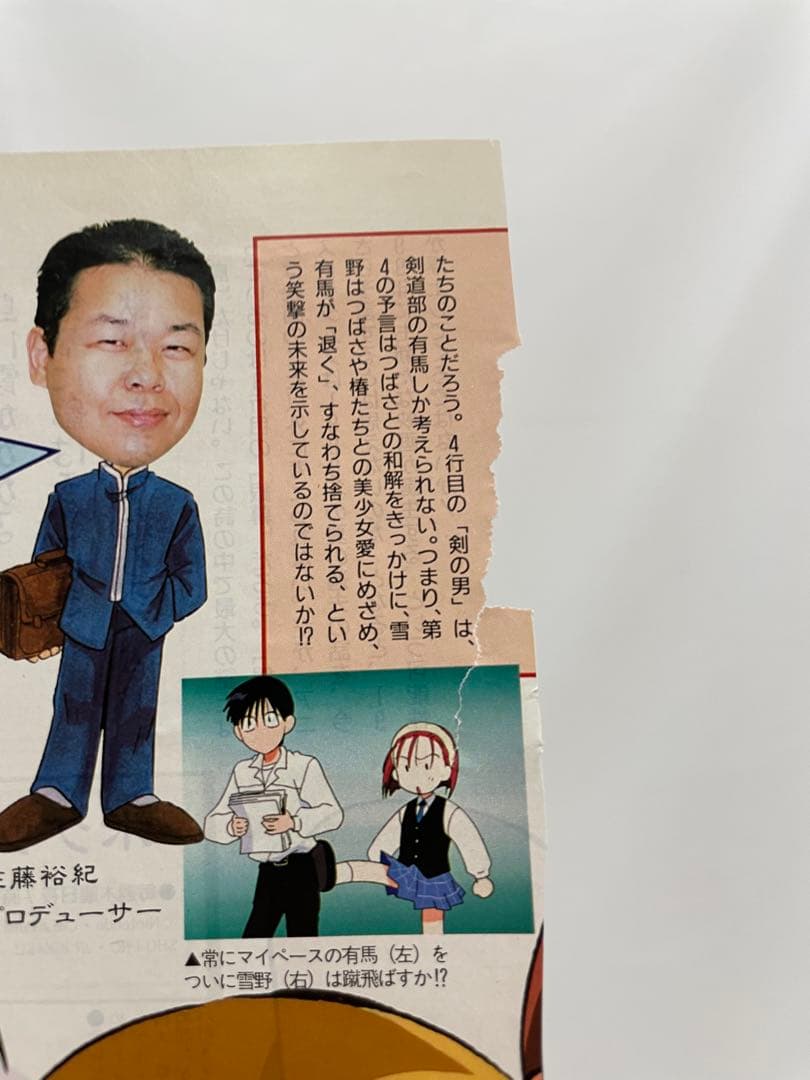 たちのことだろう。4行目の「剣の男」は、
剣道部の有馬しか考えられない。つまり、第
4の予言はつばさとの和解をきっかけに、雪
野はつばさや椿たちとの美少女愛にめざめ、
有馬が「退く」、すなわち捨てられる、とい
う笑撃の未来を示しているのではないか!?
佐藤裕紀
プロデューサー
▲常にマイペースの有馬（左）を
ついに雪野（右）は蹴飛ばすか!?